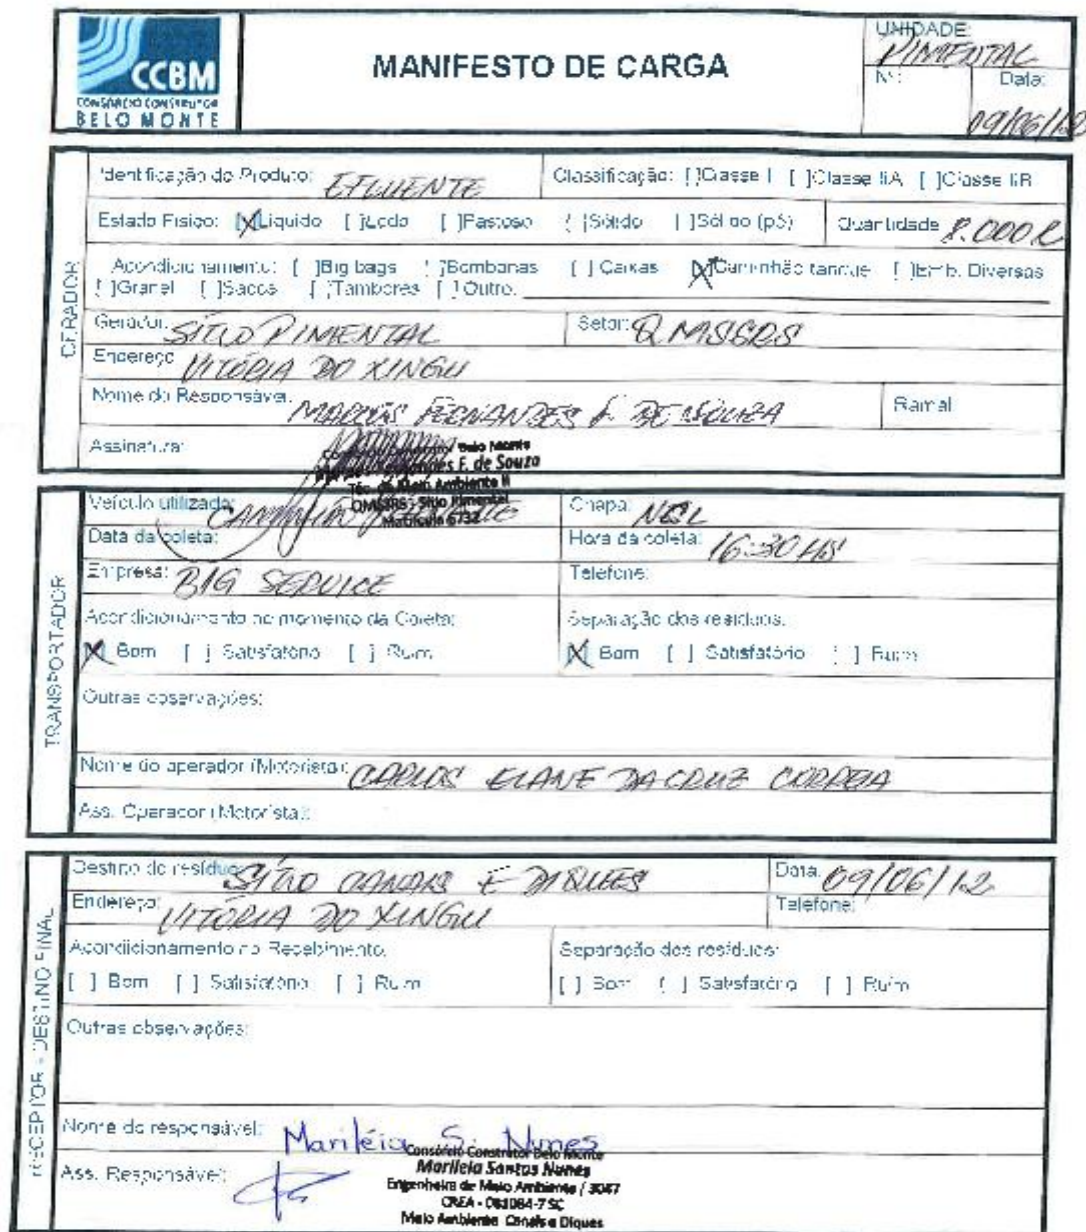 CCBM
CONSÓRCIO CONSTRUTOR
BELO MONTE
MANIFESTO DE CARGA
UNIDADE:
PIMENTAL
Nº: Data:
09/06/12
GERADOR
Identificação do Produto: EFLUENTE Classificação: [ ]Classe I [ ]Classe IIA [ ]Classe IIB
Estado Físico: [X]Líquido [ ]Lodo [ ]Pastoso [ ]Sólido [ ]Sólido (pó) Quantidade 8.000 L
Acondicionamento: [ ]Big bags [ ]Bombonas [ ]Caixas [X]Caminhão tanque [ ]Emb. Diversas
[ ]Granel [ ]Sacos [ ]Tambores [ ]Outro:
Gerador: SÍTIO PIMENTAL Setor: QMSSRS
Endereço: VITÓRIA DO XINGU
Nome do Responsável: MARCOS FERNANDES F. DE SOUZA Ramal
Assinatura:
Belo Monte
Fernandes F. de Souza
Téc. de Meio Ambiente II
QMSSRS - Sítio Pimental
Matrícula 6732
TRANSPORTADOR
Veículo utilizado: CAMINHÃO Chapa: NSL
Data da coleta: Hora da coleta: 16:30 HS
Empresa: BIG SERVICE Telefone:
Acondicionamento no momento da Coleta: Separação dos resíduos:
[X] Bom [ ] Satisfatório [ ] Ruim [X] Bom [ ] Satisfatório [ ] Ruim
Outras observações:
Nome do operador (Motorista): CARLOS ELANE DA CRUZ CORREIA
Ass. Operador (Motorista):
RECEPTOR - DESTINO FINAL
Destino do resíduo: SÍTIO CANAIS E DIQUES Data: 09/06/12
Endereço: VITÓRIA DO XINGU Telefone:
Acondicionamento no Recebimento: Separação dos resíduos:
[ ] Bom [ ] Satisfatório [ ] Ruim [ ] Bom [ ] Satisfatório [ ] Ruim
Outras observações:
Nome do responsável: Mariléia S. Nunes
Ass. Responsável:
Consórcio Construtor Belo Monte
Marileia Santos Nunes
Engenheira de Meio Ambiente / 3047
CREA - 081084-7 SC
Meio Ambiente Canais e Diques